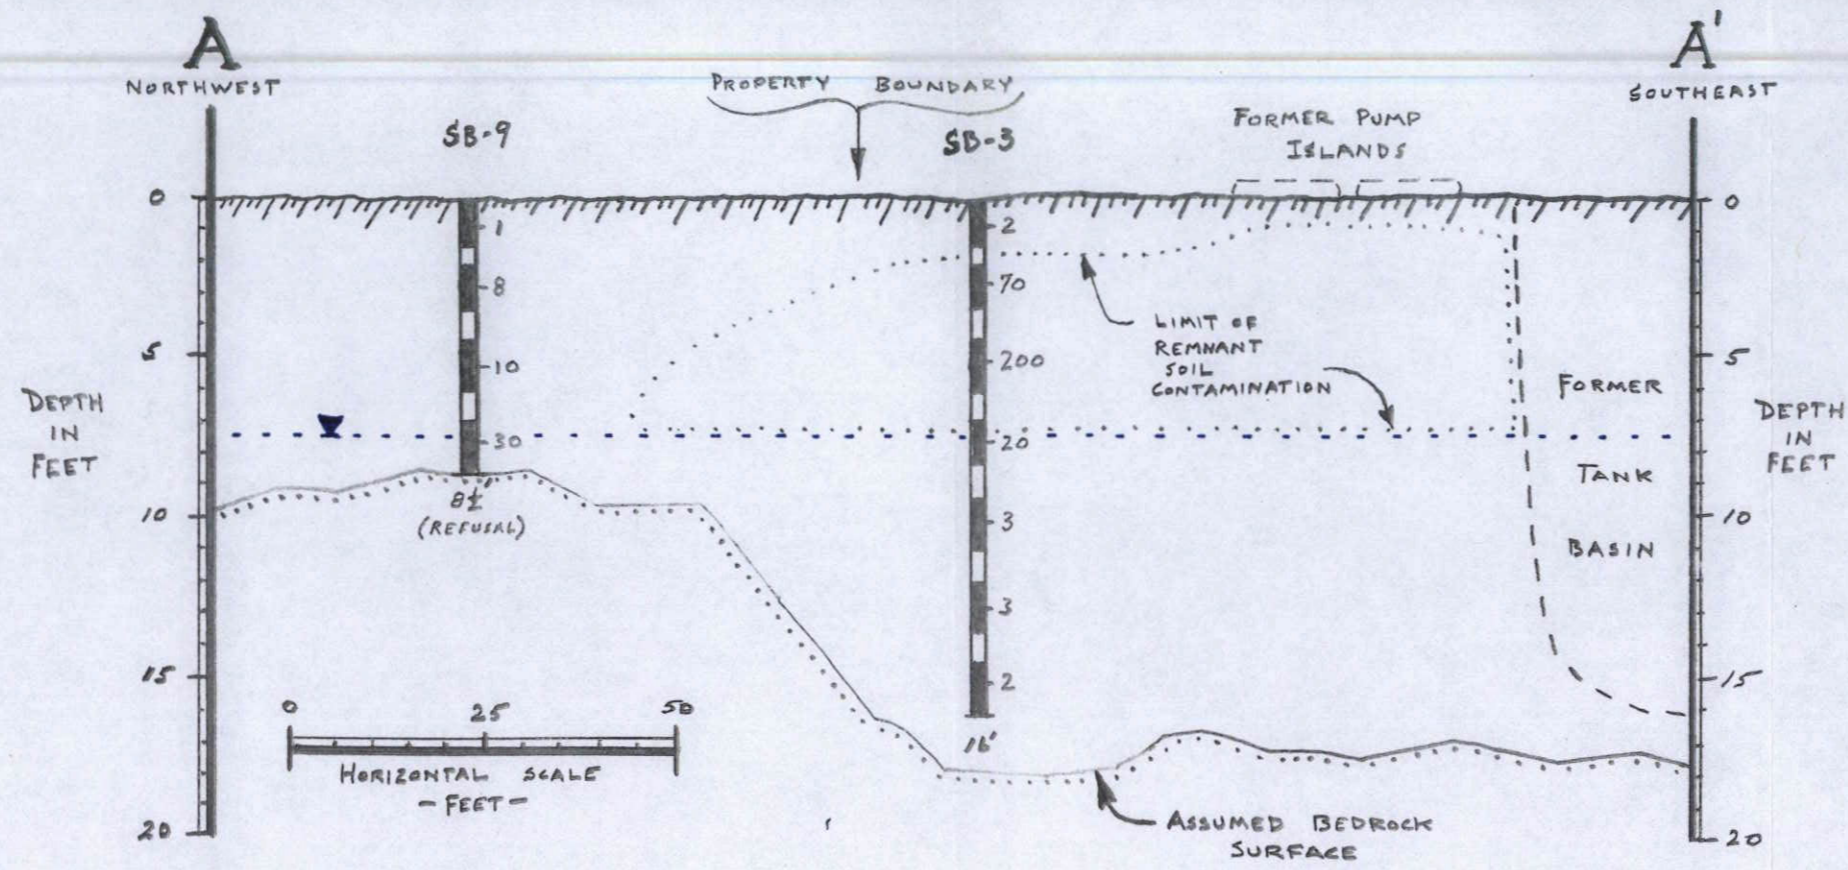 A
NORTHWEST
PROPERTY BOUNDARY
A'
SOUTHEAST
SB-9
SB-3
FORMER PUMP
ISLANDS
0
5
10
15
20
DEPTH
IN
FEET
1
8
10
30
8½'
(REFUSAL)
2
70
200
20
3
3
2
16'
LIMIT OF
REMNANT
SOIL
CONTAMINATION
FORMER
TANK
BASIN
0
5
10
15
20
DEPTH
IN
FEET
0 25 50
HORIZONTAL SCALE
- FEET -
ASSUMED BEDROCK
SURFACE